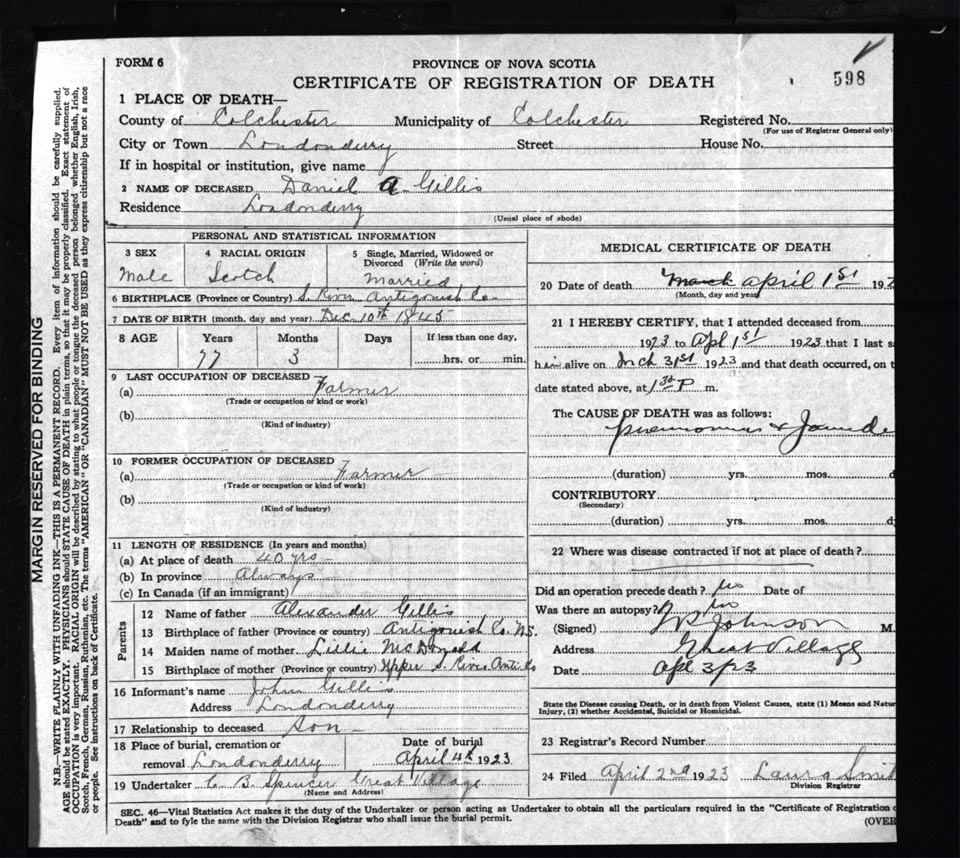 FORM 6
PROVINCE OF NOVA SCOTIA
CERTIFICATE OF REGISTRATION OF DEATH
598
1 PLACE OF DEATH—
County of Colchester Municipality of Colchester Registered No.
(For use of Registrar General only)
City or Town Londonderry Street House No.
If in hospital or institution, give name
2 NAME OF DECEASED Daniel A Gillis
Residence Londonderry
(Usual place of abode)
PERSONAL AND STATISTICAL INFORMATION
3 SEX 4 RACIAL ORIGIN 5 Single, Married, Widowed or Divorced (Write the word)
Male Scotch Married
6 BIRTHPLACE (Province or Country) S. River Antigonish Co
7 DATE OF BIRTH (month, day and year) Dec 10th 1845
8 AGE Years Months Days If less than one day,
77 3 hrs. or min.
9 LAST OCCUPATION OF DECEASED
(a) Farmer
(Trade or occupation or kind or work)
(b)
(Kind of industry)
10 FORMER OCCUPATION OF DECEASED
(a) Farmer
(Trade or occupation or kind of work)
(b)
(Kind of industry)
11 LENGTH OF RESIDENCE (In years and months)
(a) At place of death 40 yrs
(b) In province Always
(c) In Canada (if an immigrant)
Parents
12 Name of father Alexander Gillis
13 Birthplace of father (Province or country) Antigonish Co. N.S.
14 Maiden name of mother Lillie McDonald
15 Birthplace of mother (Province or country) Upper S. River Anti Co
16 Informant's name John Gillis
Address Londonderry
17 Relationship to deceased Son
18 Place of burial, cremation or removal Londonderry
Date of burial April 4th 1923
19 Undertaker C. B. Spencer Great Village
(Name and Address)
MEDICAL CERTIFICATE OF DEATH
20 Date of death March April 1st 192
(Month, day and year)
21 I HEREBY CERTIFY, that I attended deceased from
1923 to Apl 1st 1923 that I last s
him alive on Mch 31st 1923 and that death occurred, on t
date stated above, at P m.
The CAUSE OF DEATH was as follows:
pneumonia & Jaunde
(duration) yrs. mos. d
CONTRIBUTORY
(Secondary)
(duration) yrs. mos. d
22 Where was disease contracted if not at place of death?
Did an operation precede death? no Date of
Was there an autopsy? no
(Signed) Johnson M.
Address Great Village
Date Apl 3/23
State the Disease causing Death, or in death from Violent Causes, state (1) Means and Natur
Injury, (2) whether Accidental, Suicidal or Homicidal.
23 Registrar's Record Number
24 Filed April 2nd 1923 Laura Smit
Division Registrar
SEC. 46—Vital Statistics Act makes it the duty of the Undertaker or person acting as Undertaker to obtain all the particulars required in the "Certificate of Registration o
Death" and to fyle the same with the Division Registrar who shall issue the burial permit.
(OVER
MARGIN RESERVED FOR BINDING
N.B.—WRITE PLAINLY WITH UNFADING INK—THIS IS A PERMANENT RECORD. Every item of information should be carefully supplied.
AGE should be stated EXACTLY. PHYSICIANS should STATE CAUSE OF DEATH in plain terms, so that it may be properly classified. Exact statement of
OCCUPATION is very important. RACIAL ORIGIN will be described by stating to what people or tongue the deceased person belonged whether English, Irish,
Scotch, French, German, Russian, Ruthenian, etc. The terms "AMERICAN" OR "CANADIAN" MUST NOT BE USED as they express citizenship but not a race
or people. See instructions on back of Certificate.